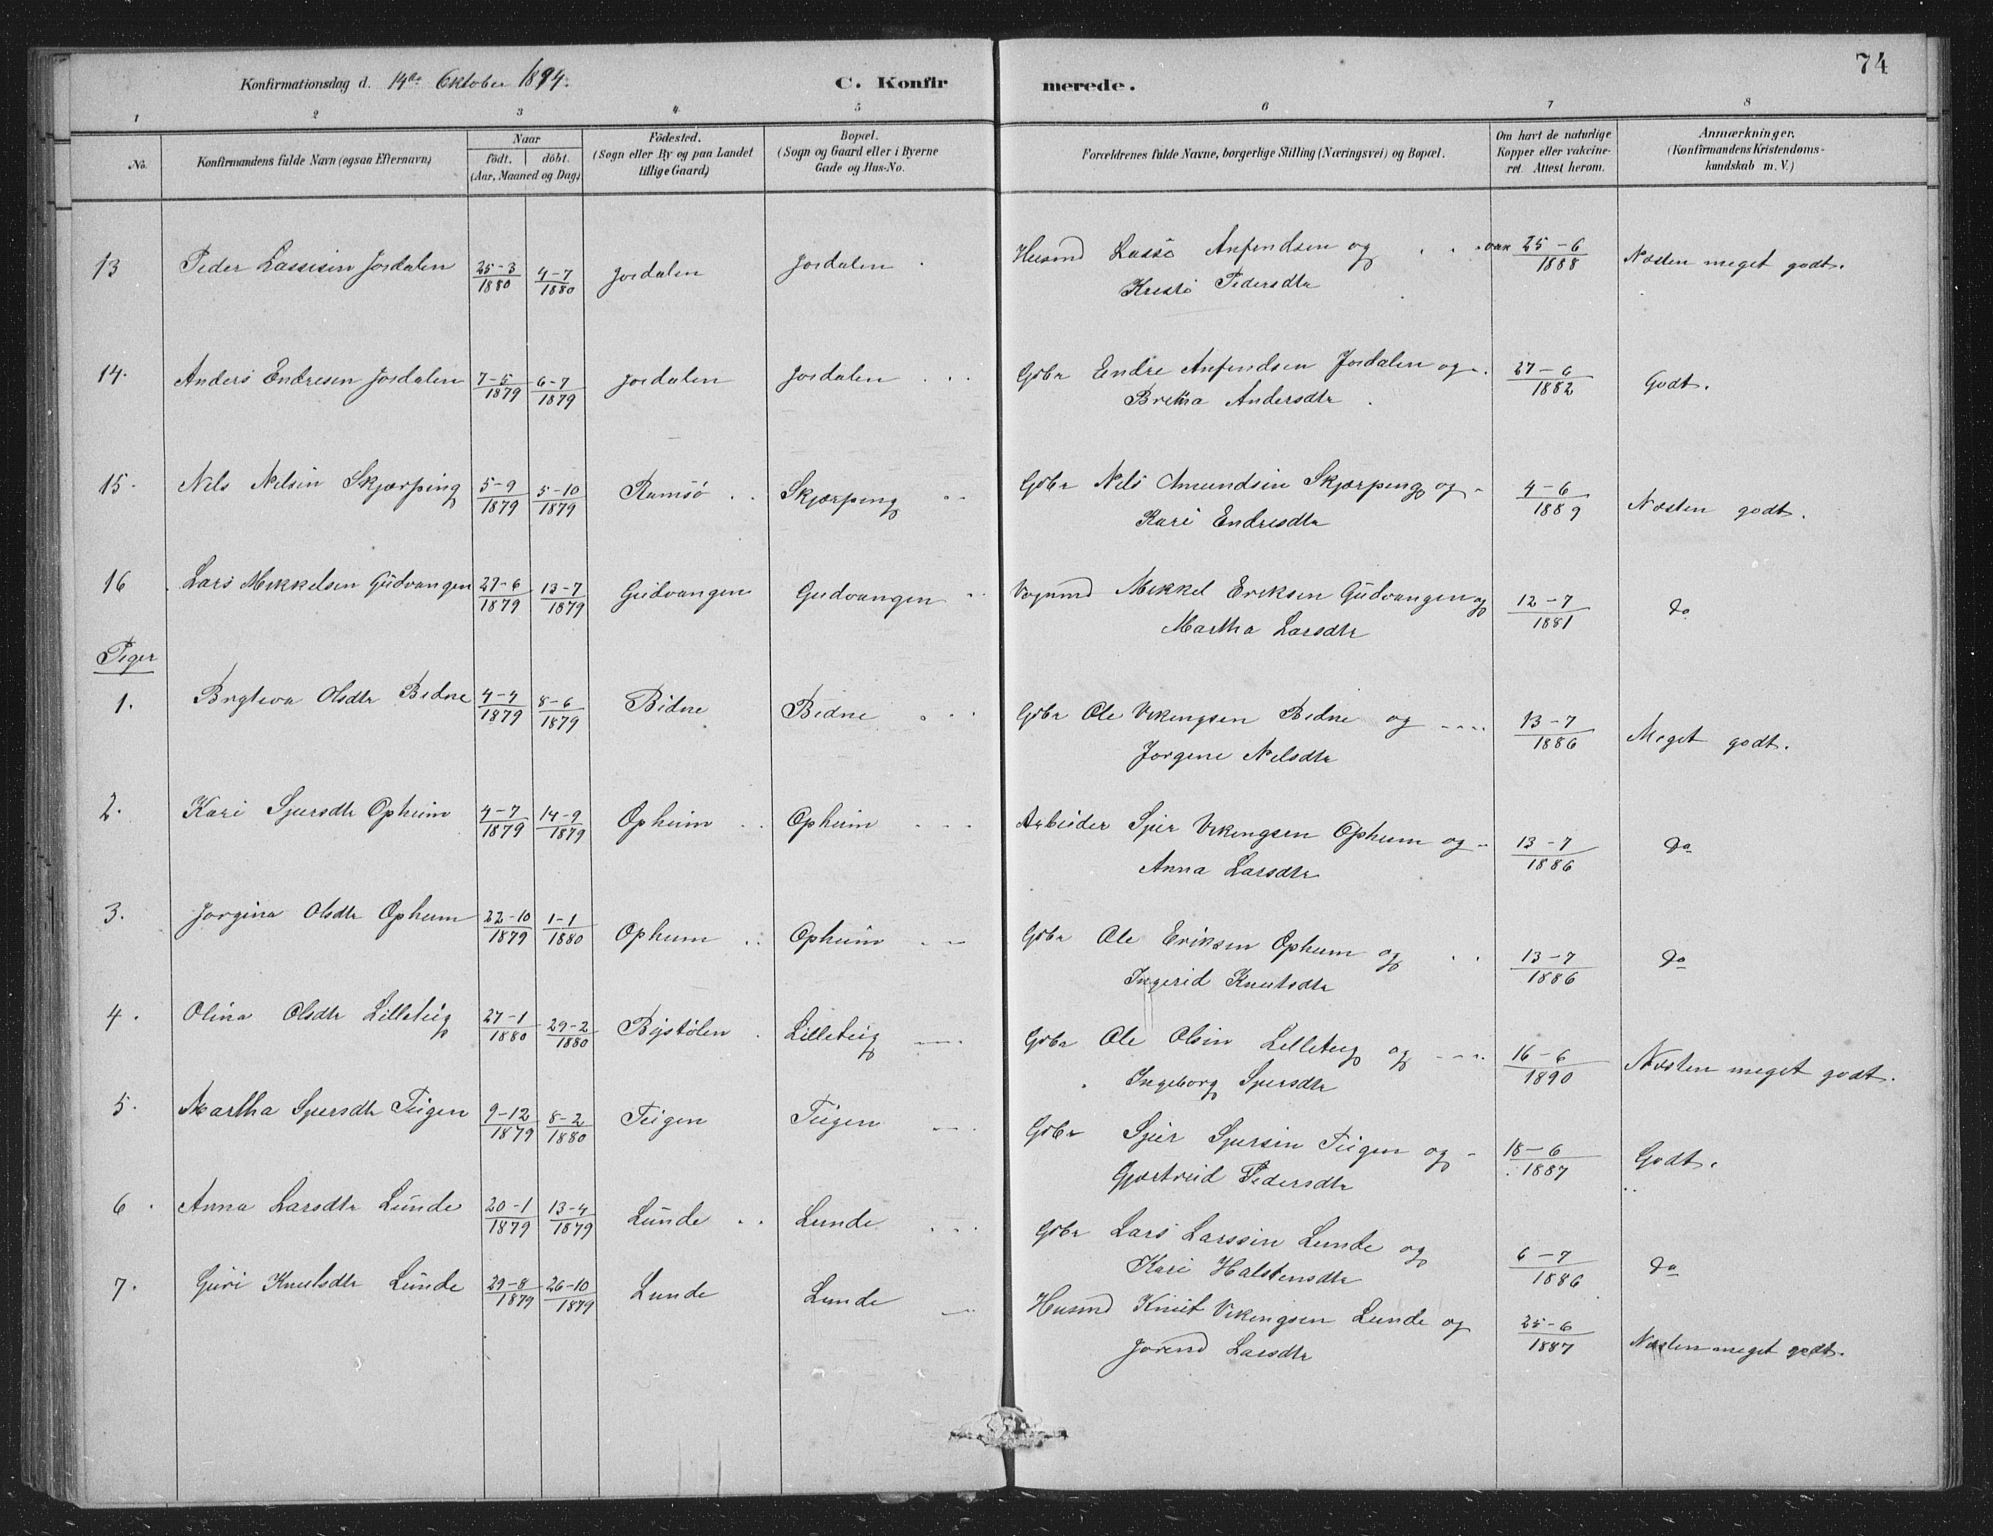 74
Konfirmationsdag d. 14de Oktober 1894.
C. Konfirmerede.
1 2 3 4 5 6 7 8
No. Konfirmandens fulde Navn (ogsaa Efternavn) Naar født. døbt. (Aar, Maaned og Dag) Fødested. (Sogn eller By og paa Landet tillige Gaard) Bopæl. (Sogn og Gaard eller i Byerne Gade og Hus-No. Forældrenes fulde Navne, borgerlige Stilling (Næringsvei) og Bopæl. Om havt de naturlige Kopper eller vakcineret. Attest herom. Anmærkninger. (Konfirmandens Kristendomskundskab m. V.)
13 Peder Lassesen Jordalen 25-3 1880 4-7 1880 Jordalen Jordalen Husmd Lasse Anfendsen og vak 25-6 1888 Næsten meget godt.
Kristi Pedersdtr
14. Anders Endresen Jordalen 7-5 1879 6-7 1879 Jordalen Jordalen Gdbr Endre Anfendsen Jordalen og 27-6 1882 Godt.
Bretha Andersdtr
15. Nils Nilsen Skjærping 5-9 1879 5-10 1879 Ramsø Skjærping Gdbr Nils Amundsen Skjærping og 4-6 1889 Næsten godt.
Kari Endresdtr
16 Lars Mikkelsen Gudvangen 27-6 1879 13-7 1879 Gudvangen Gudvangen Mikkel Eriksen Gudvangen og 12-7 1881 do
Martha Larsdtr
Piger
1. Bryteva Olsdtr Bidne 4-4 1879 8-6 1879 Bidne Bidne Gdbr Ole Vikingsen Bidne og 13-7 1886 Meget godt.
Jorgine Nilsdtr
2. Kari Sjursdtr Opheim 4-7 1879 14-9 1879 Opheim Opheim Arbeider Sjur Vikingsen Opheim og 13-7 1886 do
Anna Larsdtr
3. Jorgina Olsdtr Opheim 22-10 1879 1-1 1880 Opheim Opheim Gdbr Ole Eriksen Opheim og 13-7 1886 do
Ingerid Knutsdtr
4. Olina Olsdtr Lilleteig 27-1 1880 29-2 1880 Bystølen Lilleteig Gdbr Ole Olsen Lilleteig og 16-6 1890 Næsten meget godt.
Ingeborg Sjursdtr
5. Martha Sjursdtr Teigen 9-12 1879 8-2 1880 Teigen Teigen Gdbr Sjur Sjursen Teigen og 18-6 1887 Godt.
Gjertrud Pedersdtr
6. Anna Larsdtr Lunde 20-1 1879 13-4 1879 Lunde Lunde Gdbr Lars Larssen Lunde og 6-7 1886 do
Kari Halstensdtr
7. Guri Knutsdtr Lunde 29-8 1879 26-10 1879 Lunde Lunde Husmd Knut Vikingsen Lunde og 25-6 1887 Næsten meget godt.
Jorend Larsdtr